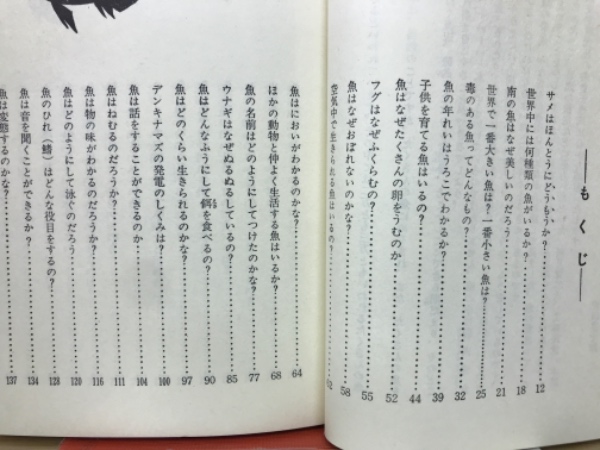 ―もくじ―
サメはほんとうにどうもうか?……12
世界中には何種類の魚がいるか?……18
南の魚はなぜ美しいのだろう……21
世界で一番大きい魚は?一番小さい魚は?……25
毒のある魚ってどんなもの?……32
魚の年れいはうろこでわかるか?……39
子供を育てる魚はいるの?……44
魚はなぜたくさんの卵をうむのか……52
フグはなぜふくらむの?……55
魚はなぜおぼれないのかな?……58
空気中で生きられる魚はいるの?……62
魚はにおいがわかるのかな?……64
ほかの動物と仲よく生活する魚はいるか?……68
魚の名前はどのようにしてつけたのかな?……77
ウナギはなぜぬるぬるしているの?……85
魚はどんなふうにして餌を食べるの?……90
魚はどのくらい生きられるのかな?……97
デンキナマズの発電のしくみは?……100
魚は話をすることができるのか……104
魚はねむるのだろうか?……111
魚は物の味がわかるのだろうか?……116
魚はどのようにして泳ぐのだろう……120
魚のひれ(鰭)はどんな役目をするの?……128
魚は音を聞くことができるか?……134
魚は変態するのかな?……137